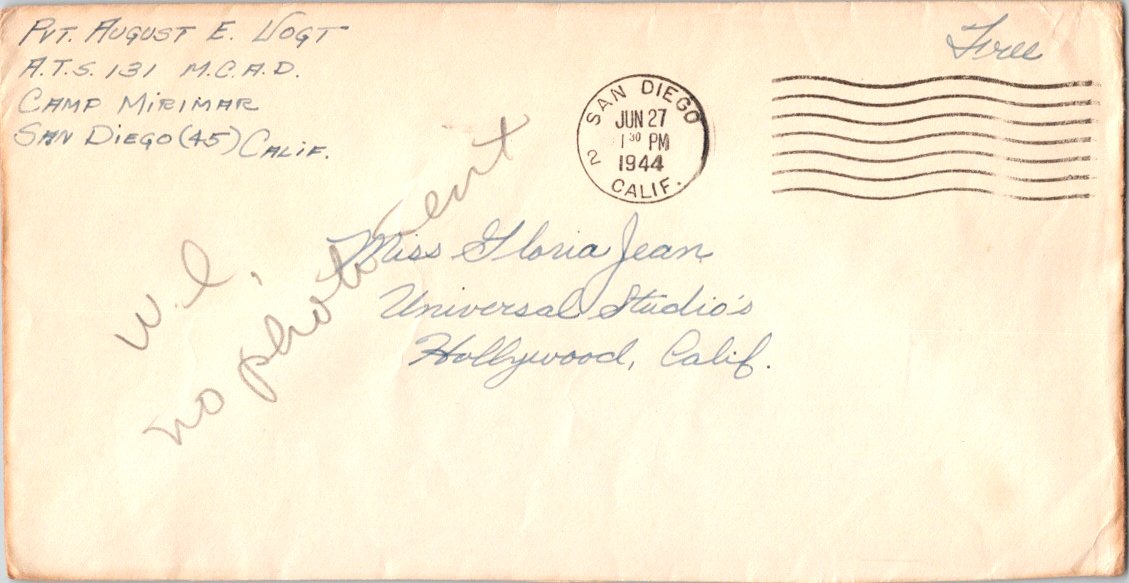 PVT. AUGUST E. VOGT
A.T.S. 131 M.C.A.D.
CAMP MIRIMAR
SAN DIEGO (45) CALIF.
Free
SAN DIEGO
JUN 27
1 30 PM
1944
2 CALIF.
Miss Gloria Jean
Universal Studio's
Hollywood, Calif.
w.l,
no photo sent